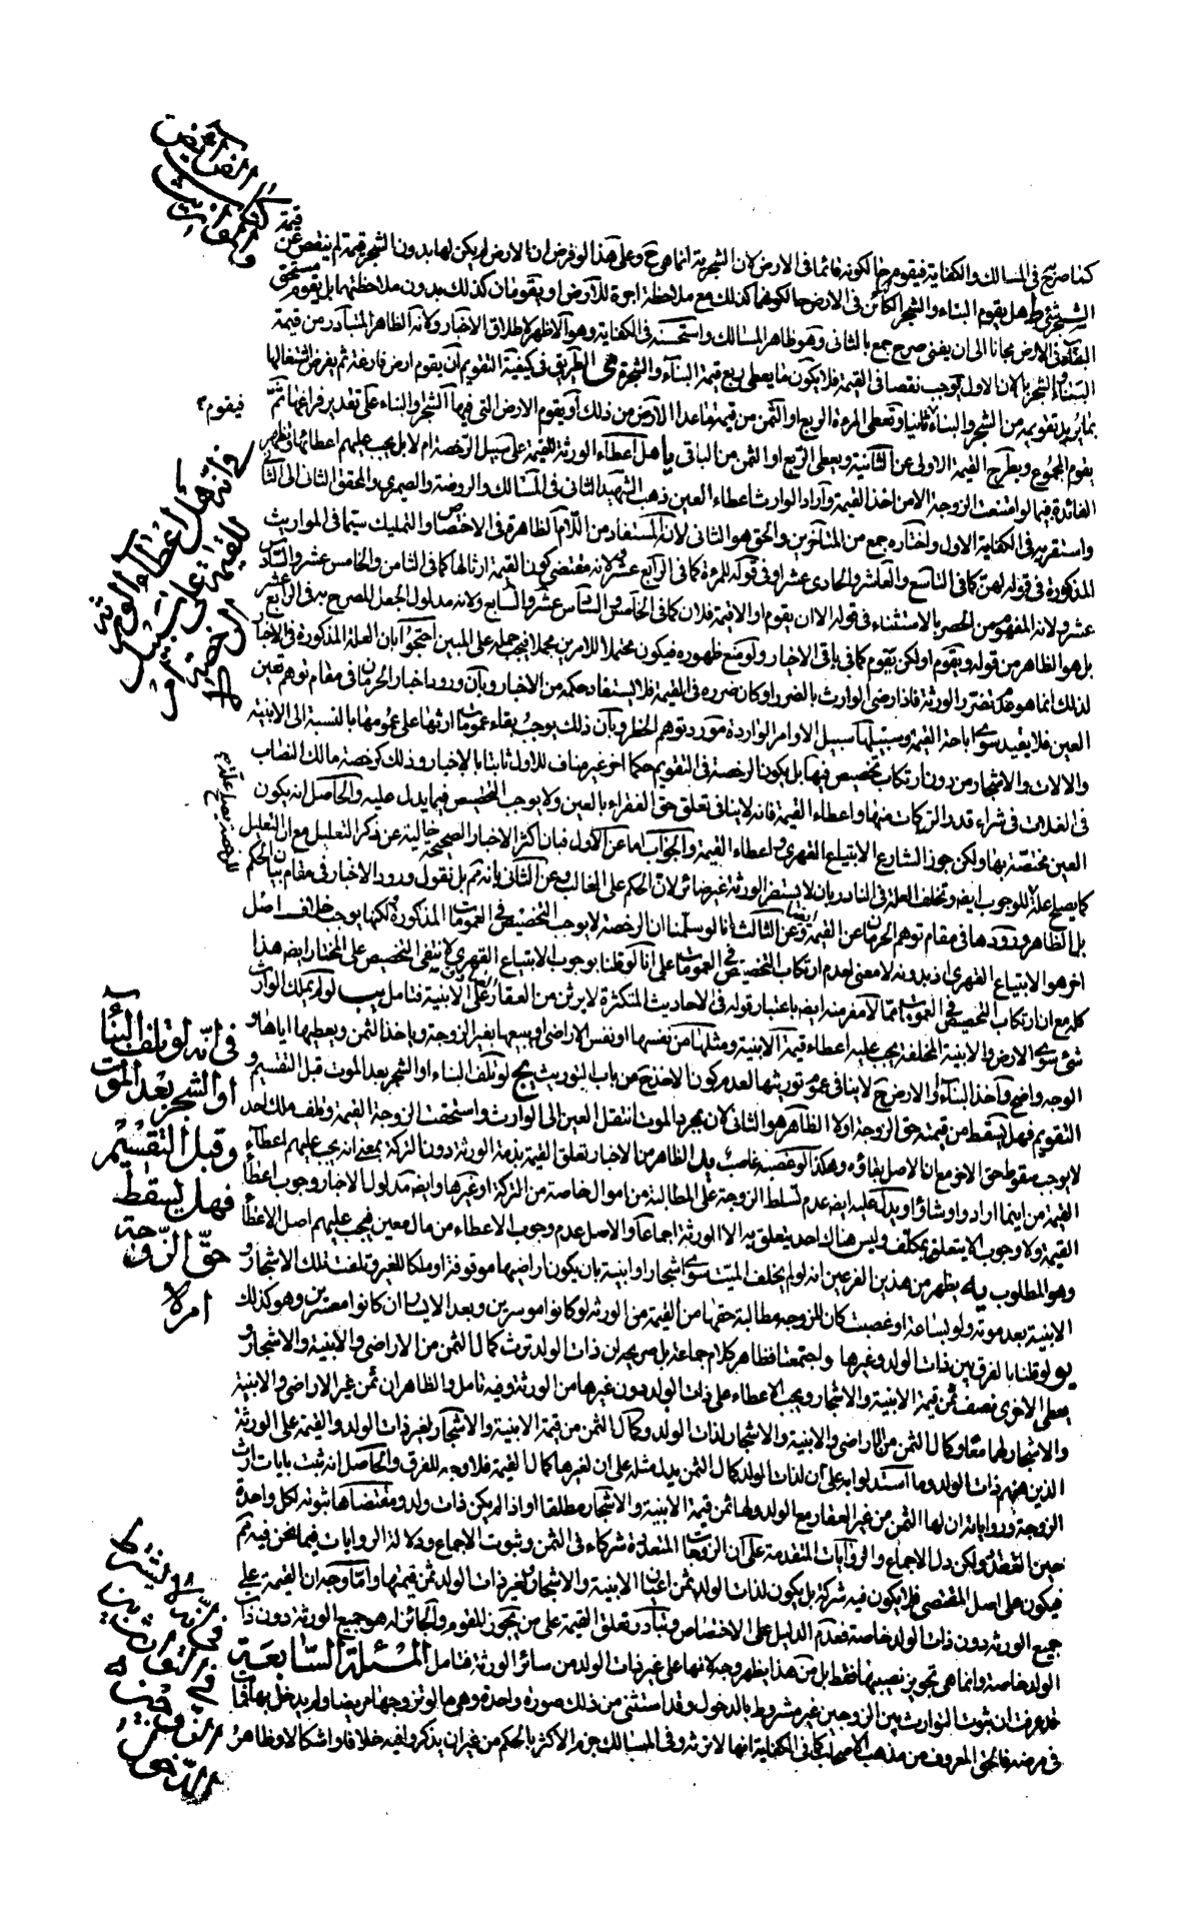 كتاب الفرائض
والمواريث
كما صرّح في المسالك والكفاية فيقوم حالكونه قائما في الارض لان الشجرية انما هي ح وعلى هذا لو فرض ان الارض لم يكن لها بدون الشجر قيمة لم ينقص عن قيمة
الشجر شئ ط هل يقوم البناء والشجر الكائن في الارض حالكونهما كذلك مع ملاحظة اجرة للارض او يقومان كذلك بدون ملاحظتهما بل يقوم مستحق
البقاء في الارض مجانا الى ان يفنى صرح جمع بالثاني وهو ظاهر المسالك واستحسنه في الكفاية وهو الاظهر لاطلاق الاخبار ولانه الظاهر المتبادر من قيمة
البناء الشجر لان الاول يوجب نقصا في القيمة فلا يكون ما يعطى ربع قيمة البناء والشجرة الطريق في كيفية التقويم ان يقوم ارض فارغة ثم يفرض اشتغالها
بما يريد تقويمه من الشجر والبناء ثانيا وتعطى المرءة الربع او الثمن من قيمة ما عدا الارض من ذلك او يقوم الارض التي فيها الشجر والبناء على تقدير فراغها ثم
يقوم المجموع ويطرح القيمة الاولى عن الثانية ويعطى الربع او الثمن من الباقي يا هل اعطاء الورثة للقيمة على سبيل الرخصة ام لا بل يجب عليهم اعطائها وتظهر
الفائدة فيما لو امتنعت الزوجة الا من اخذ القيمة واراد الوارث اعطاء العين ذهب الشهيد الثاني في المسالك والروضة والصيمري والمحقق الثاني الى الثا
واستقر به في الكفاية الاول واختاره جمع من المتأخرين والحق هو الثاني لانه المستفاد من اللام الظاهرة في الاختصاص او التمليك سيما في المواريث
المذكورة في قوله لهن كما في التاسع والعاشر والحادي عشر او في قوله للمرءة كما في الرابع عشر لانه مقتضى كون القيمة ارثا لها كما في الثامن والخامس عشر والسادس
عشر ولانه المفهوم من الحصر بالاستثناء في قوله الا ان يقوم او الا قيمة فلان كما في الخامس والسادس عشر والسابع ولانه مدلول الجعل المصرح به في الرابع عشر
بل هو الظاهر من قوله ويقوم او لكن يقوم كما في باقي الاخبار ولو منع ظهوره فيكون محتملا للامرين مجملا فيجب حمله على المبين احتجوا بان العلة المذكورة في الاخبار
لذلك انما هو عدم تضرر الورثة فاذا رضى الوارث بالضرر او كان ضرره في القيمة فلا يستفاد حكمه من الاخبار وبان ورود اخبار الحرمان في مقام توهم تعين
العين فلا يفيد سوى اباحة القيمة وسبيلها سبيل الاوامر الواردة مورد توهم الحظر وبان ذلك يوجب بقاء عمومات ارثها على عمومها بالنسبة الى الابنية
والالات والاشجار من دون ارتكاب تخصيص فيها بل يكون الرخصة في التقويم حكما اخر غير مناف للاول ثابتا بالاخبار وذلك كرخصة مالك النصاب
في الغلات في شراء قدر الزكات منها واعطاء القيمة فانه لا ينافي تعلق حق الفقراء بالعين ولا يوجب التخصيص فيما يدل عليه والحاصل انه يكون
العين مختصة بها ولكن جوز الشارع الابتياع القهري واعطاء القيمة والجواب اما عن الاول فبان اكثر الاخبار الصحيحة خالية عن ذكر التعليل مع ان التعليل
كما يصلح علة للوجوب ايضا وتخلف العلة في النادر بان لا يستضر الورثة غير ضائر لان الحكم على الغالب وعن الثاني بانه لم بل نقول ورود الاخبار في مقام بيان الحكم
بل الظاهر ورودها في مقام توهم الحرمان عن القيمة ايضا وعن الثالث انا لو سلمنا ان الرخصة لا يوجب التخصيص في العمومات المذكورة لكنها يوجب خلاف اصل
اخر هو الابتياع القهري اذ بدونه لا معنى لعدم ارتكاب التخصيص في العمومات على انا لو قلنا بوجوب الابتياع القهري لانتفى التخصيص على المختار ايضا هذا
كله مع ان ارتكاب التخصيص في العمومات مما لا مفر منه ايضا باعتبار قوله في الاحاديث المتكثرة لا يرثن من العقار على الابنية فتامل يب لو لم يملك الوارث
شئ سوى الارض والابنية المخلفة يجب عليه اعطاء قيمة الابنية ومثلها من نفسها او نفس الاراضي او يبيعها بغير الزوجة وياخذ الثمن ويعطيها اياها و
الوجه واضح واخذ البناء والارض ح لا ينافي عموم توريثها لعدم كون الاخذ ح من باب التوريث يج لو تلف البناء او الشجر بعد الموت قبل التقسيم و
التقويم فهل يسقط من قيمته حق الزوجة اولا الظاهر هو الثاني لان بمجرد الموت انتقل العين الى الوارث واستحقت الزوجة القيمة وتلف ملك احد
لا يوجب سقوط حق الاخر مع ان الاصل بقاؤه وهكذا لو غصبه غاصب يد الظاهر من الاخبار تعلق القيمة بذمة الورثة دون التركة بمعنى انه يجب عليهم اعطاء
القيمة من اينما ارادوا وشاؤا ويدل عليه ايضا عدم تسلط الزوجة على المطالبة من اموال خاصة من التركة او غيرها وايضا مدلول الاخبار وجوب اعطاء
القيمة ولا وجوب الا يتعلق بمكلف وليس هناك احد يتعلق به الا الورثة اجماعا والاصل عدم وجوب الاعطاء من مال معين فيجب عليهم اصل الاعطاء
وهو المطلوب يه يظهر من هذين الفرعين انه لو لم يخلف الميت سوى اشجار او ابنية بان يكون اراضيها موقوفة او ملكا للغير وتلفت تلك الاشجار و
الابنية بعد موته ولو بساعة او غصبت كان للزوجة مطالبة حقها من القيمة من الورثة لو كانوا موسرين وبعد الايسار ان كانوا معسرين وهو كذلك
يو لو قلنا بالفرق بين ذات الولد وغيرها واجتمعتا فظاهر كلام جماعة بل صريحه ان ذات الولد ترث كمال الثمن من الاراضي والابنية والاشجار و
يعطى الاخرى نصف ثمن قيمة الابنية والاشجار ويجب الاعطاء على ذات الولد دون غيرها من الورثة وفيه تامل والظاهر ان ثمن غير الاراضي والابنية
والاشجار لهما معا وكمال الثمن من الاراضي والابنية والاشجار لذات الولد وكمال الثمن من قيمة الابنية والاشجار لغير ذات الولد والقيمة على الورثة
الذين منهم ذات الولد وما استدلوا به على ان لذات الولد كمال الثمن يدل مثله على ان لغيرها كمال القيمة فلا وجه للفرق والحاصل انه ثبت بايات ارث
الزوجة ورواياته ان لها الثمن من غير العقار مع الولد ولها ثمن قيمة الابنية والاشجار مطلقا او اذا لم يكن ذات ولد ومقتضاها ثبوته لكل واحدة
حين التعدد ولكن دل الاجماع والروايات المتقدمة على ان الزوجات المتعددة شركاء في الثمن وثبوت الاجماع ودلالة الروايات فيما نحن فيه لم
فيكون على اصل المقتضى فلا يكون فيه شركة بل يكون لذات الولد ثمن اعيان الابنية والاشجار ولغير ذات الولد ثمن قيمتها واما وجه ان القيمة على
جميع الورثة دون ذات الولد خاصة فعدم الدليل على الاختصاص وتبادر تعلق القيمة على من يجوز للقوم والجائز له هو جميع الورثة دون ذات
الولد خاصة وانما هي تجويز نصيبها فقط بل من هذا يظهر وجه لانها على غير ذات الولد من سائر الورثة فتامل المسئلة السابعة
قد عرفت ان ثبوت التوارث بين الزوجين غير مشروط بالدخول وقد استثنى من ذلك صورة واحدة وهي ما لو تزوجها مريضا ولم يدخل بها فمات
في مرضه فالحق المعروف من مذهب الاصحاب كما في الكفاية انها لا ترثه وفي المسالك جزم الاكثر بالحكم من غير ان يذكروا فيه خلافا او اشكالا وظاهر
فيقوم
وانه هل اعطاء الورثة
للقيمة على سبيل
الرخصة ام لا
للرخصة يصلح علة م
في انه لو تلف البناء
او الشجر بعد الموت
وقبل التقسيم
فهل يسقط
حق الزوجة
ام لا
في انه هل يشترط
في التوارث بين
الزوجين
الدخول